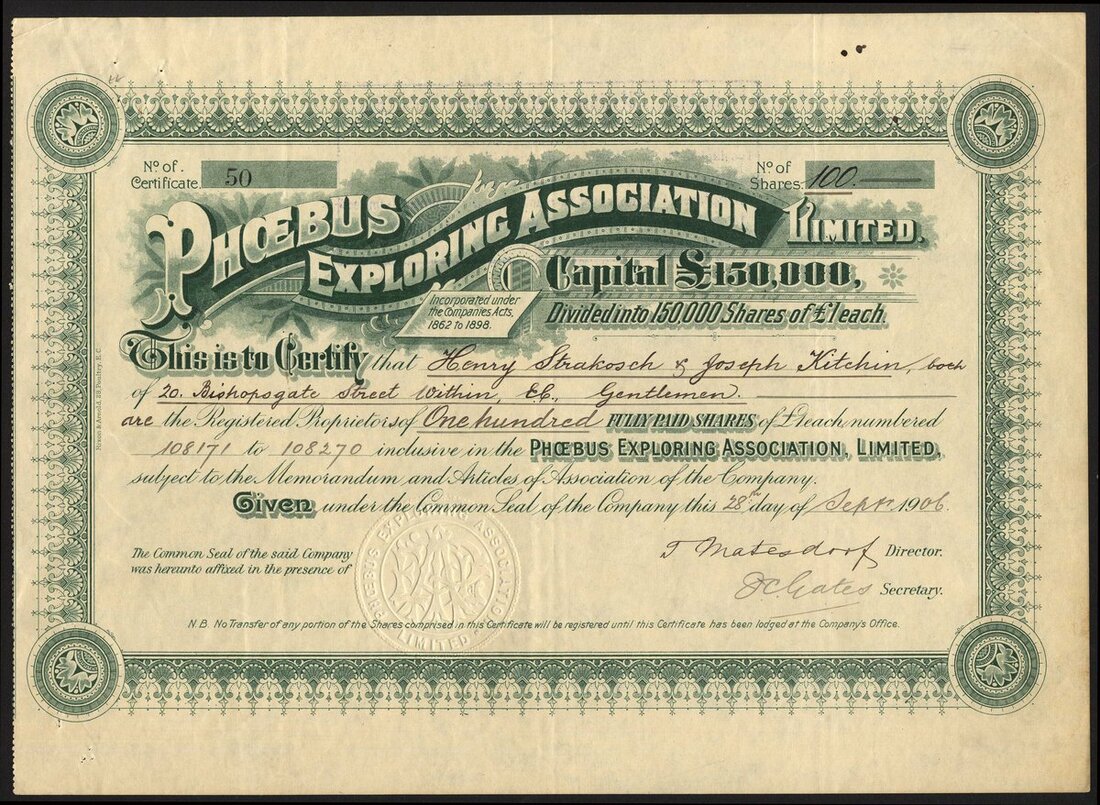 No. of Certificate. 50
No. of Shares: 100.
PHŒBUS EXPLORING ASSOCIATION LIMITED.
Capital £150,000,
Incorporated under the Companies Acts, 1862 to 1898.
Divided into 150,000 Shares of £1 each.
This is to Certify that Henry Strakosch & Joseph Kitchin, both
of 20. Bishopsgate Street Within, E.C., Gentlemen.
are the Registered Proprietors of One hundred FULLY PAID SHARES of £1 each numbered
108171 to 108270 inclusive in the PHŒBUS EXPLORING ASSOCIATION, LIMITED,
subject to the Memorandum and Articles of Association of the Company.
Given under the Common Seal of the Company this 28th day of Septr. 1906.
The Common Seal of the said Company
was hereunto affixed in the presence of
PHŒBUS EXPLORING ASSOCIATION LIMITED
F Matesdorf Director.
Gates Secretary.
N.B. No Transfer of any portion of the Shares comprised in this Certificate will be registered until this Certificate has been lodged at the Company's Office.